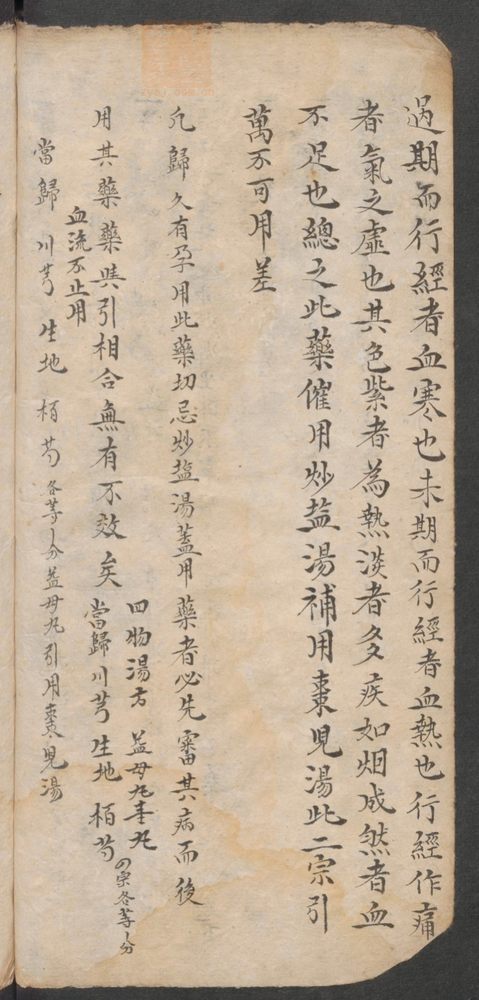 過期而行經者血寒也未期而行經者血熱也行經作痛
者氣之虛也其色紫者為熱淡者多疾如烟成然者血
不足也總之此藥催用炒盐湯補用棗見湯此二宗引
萬不可用差
凢歸久有孕用此藥切忌炒盐湯蓋用藥者必先審其病而後
用其藥藥與引相合無有不效矣
四物湯方 益母九壹九
當歸 川芎 生地 栢芍 各等分
血流不止用
當歸 川芎 生地 栢芍 各等分益母九引用棗見湯